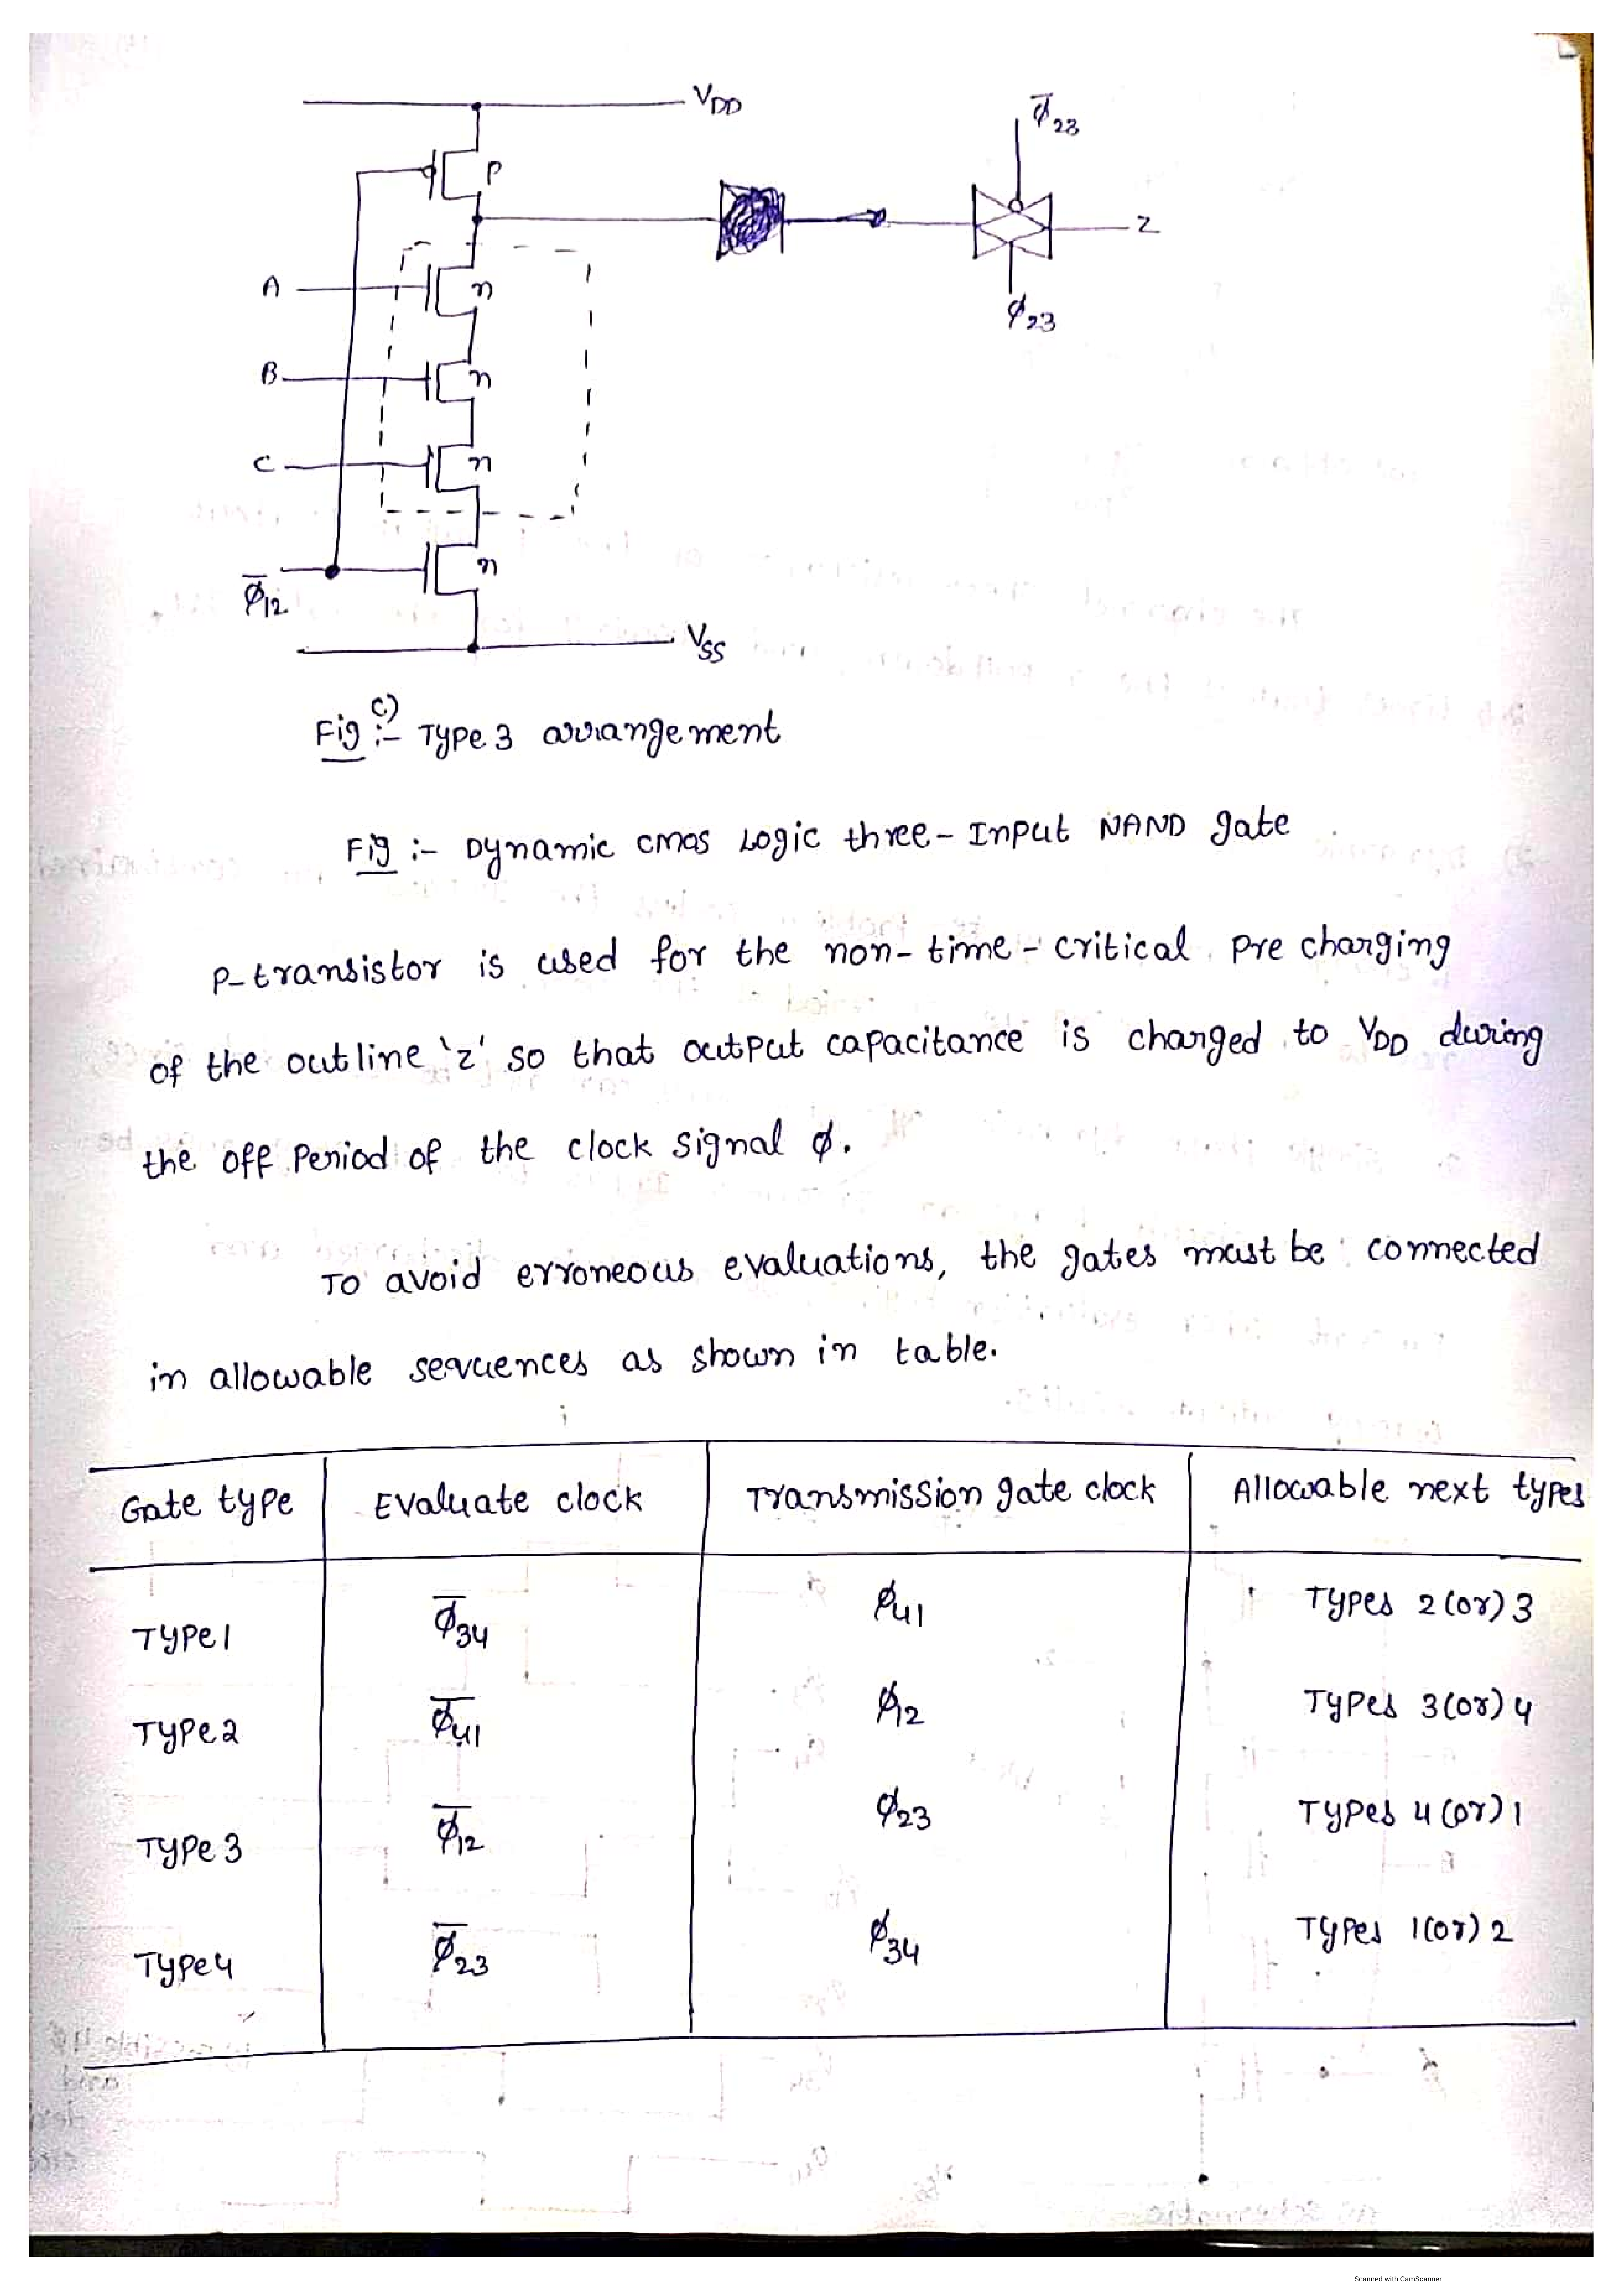 VDD
φ̅23
P
Z
A
n
φ23
B
n
C
n
n
φ̅12
VSS
Fig c) :- Type 3 arrangement
Fig :- Dynamic cmos Logic three-Input NAND gate
P-transistor is used for the non-time-critical pre charging
of the outline 'z' so that output capacitance is charged to VDD during
the off Period of the clock signal φ.
To avoid erroneous evaluations, the gates must be connected
in allowable sequences as shown in table.
Gate type Evaluate clock Transmission gate clock Allowable next types
Type1 φ̅34 φ41 Types 2(or) 3
Type2 φ̅41 φ12 Types 3(or) 4
Type 3 φ̅12 φ23 Types 4(or) 1
Type4 φ̅23 φ34 Types 1(or) 2
Scanned with CamScanner